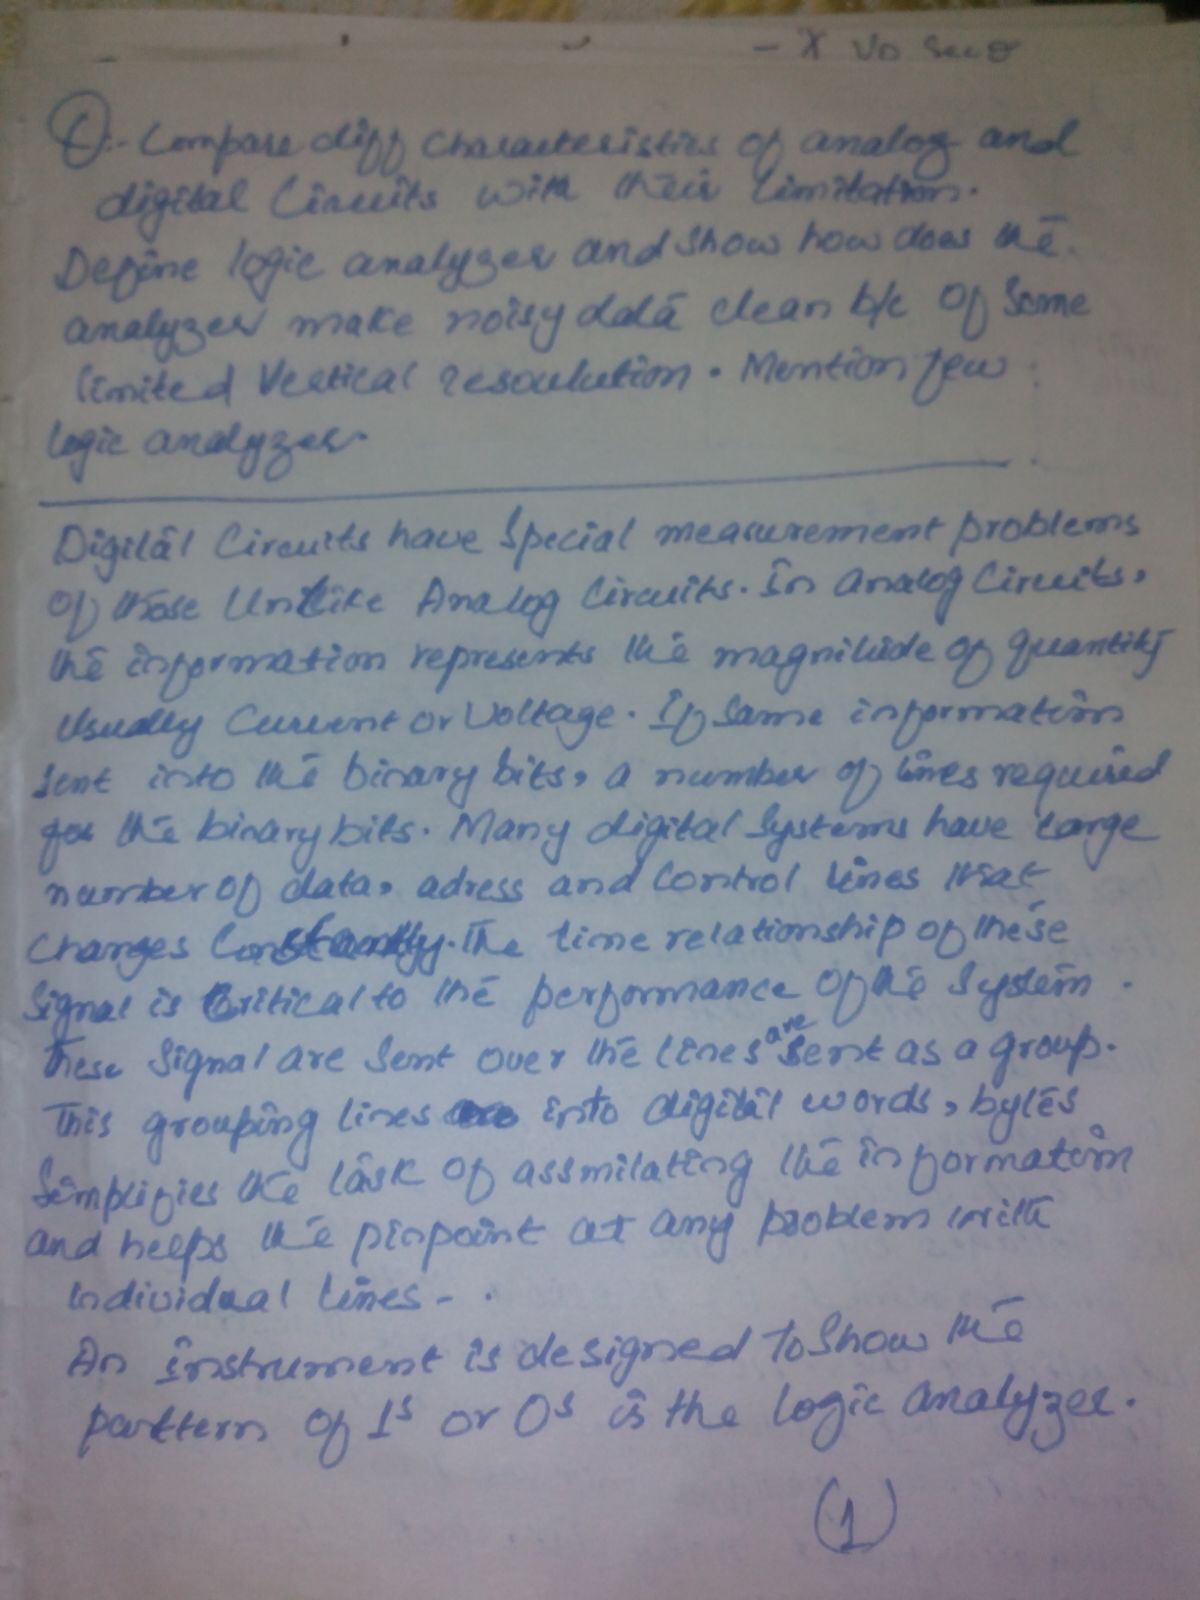 Q:- Compare diff characteristics of analog and
digital Circuits with their limitation.
Define logic analyzer and show how does the
analyzer make noisy data clean b/c of some
limited Vertical resoulution. Mention few
logic analyzer.
Digital Circuits have Special measurement problems
of those Unlike Analog Circuits. In analog Circuits,
the information represents the magnitude of quantity
Usually Current or Voltage. If same information
sent into the binary bits, a number of lines required
for the binary bits. Many digital Systems have large
number of data, adress and Control lines that
changes Constantly. The time relationship of these
signal is Critical to the performance of the System.
These signal are sent over the lines are sent as a group.
This grouping lines into digital words, bytes
Simplifies the task of assmilating the information
and helps the pinpoint at any problem with
individual lines -.
An instrument is designed to show the
pattern of 1s or 0s is the logic analyzer.
(1)